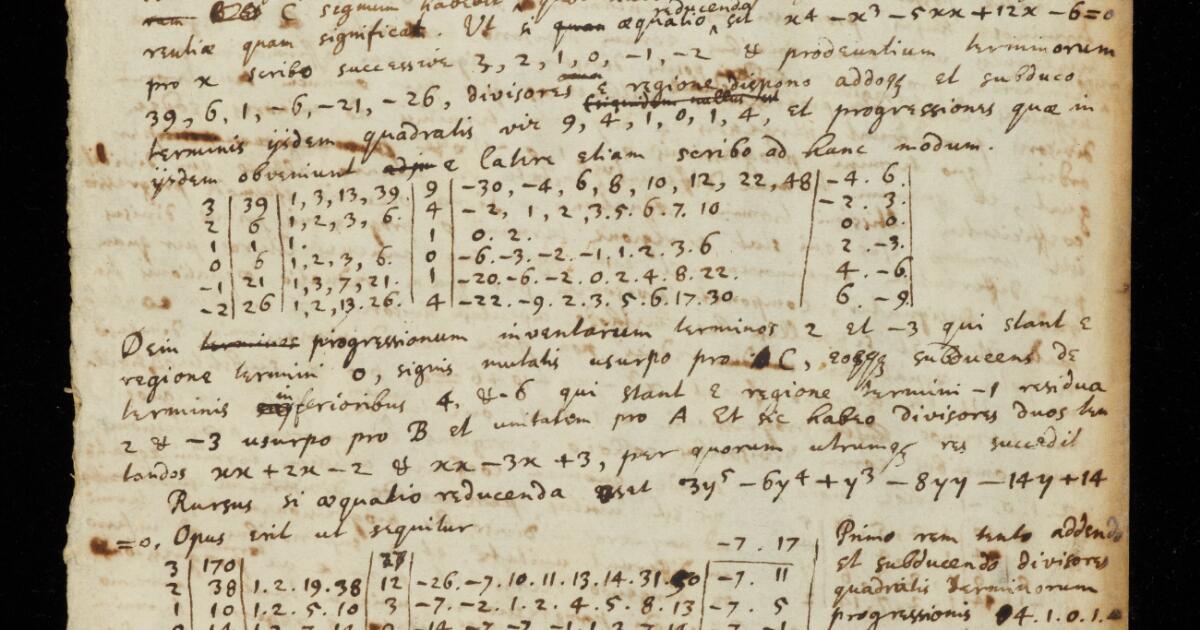 C signum habe
rentiæ quam significat. Ut si quan æquatio reducenda sit x4 - x3 - 5xx + 12x - 6 = 0
pro x scribo successive 3, 2, 1, 0, -1, -2 & prodeuntium terminorum
39, 6, 1, -6, -21, -26, divisores e regione dispono addoqꝫ et subduco
terminis ijsdem quadratis viz 9, 4, 1, 0, 1, 4, et progressiones quæ in
ijsdem obveniunt e latere etiam scribo ad hunc modum.
3 | 39 | 1, 3, 13, 39. | 9 | -30, -4, 6, 8, 10, 12, 22, 48 | -4. 6.
2 | 6 | 1, 2, 3, 6. | 4 | -2, 1, 2, 3. 5. 6. 7. 10 | -2. 3.
1 | 1 | 1. | 1 | 0. 2. | 0. 0.
0 | 6 | 1, 2, 3, 6. | 0 | -6. -3. -2. -1. 1. 2. 3. 6 | 2. -3.
-1 | 21 | 1, 3, 7, 21. | 1 | -20. -6. -2. 0. 2. 4. 8. 22. | 4. -6
-2 | 26 | 1, 2, 13. 26. | 4 | -22. -9. 2. 3. 5. 6. 17. 30 | 6. -9.
Dein terminos progressionum inventarum terminos 2 et -3 qui stant e
regione termini 0, signis mutatis usurpo pro C, eosqꝫ subducens de
terminis inferioribus 4, & -6 qui stant e regione termini -1 residua
2 & -3 usurpo pro B et unitatem pro A. Et sic habeo divisores duos ten
tandos xx + 2x - 2 & xx - 3x + 3, per quorum utrumqꝫ res succedit
Rursus si æquatio reducenda esset 3y5 - 6y4 + y3 - 8yy - 14y + 14
= 0, Opus erit ut sequitur
3 | 170 | 27 | -7. 17
2 | 38 | 1. 2. 19. 38 | 12 | -26. -7. 10. 11. 13. 14. 31. 50 | -7. 11
1 | 10 | 1. 2. 5. 10 | 3 | -7. -2. 1. 2. 4. 5. 8. 13 | -7. 5
Primo rem tento addendo
et subducendo divisores
quadratis terminorum
progressionis 4. 1. 0. 1.